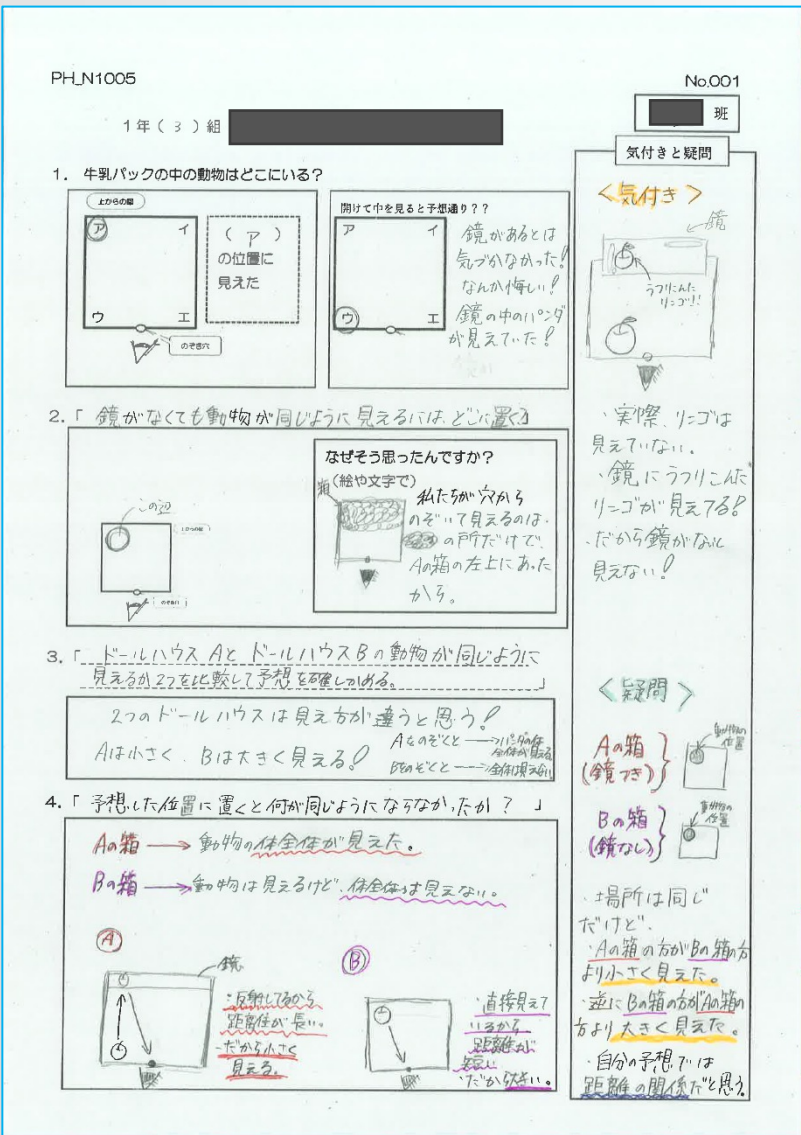 PH_N1005
No.001
1年(3)組
班
1. 牛乳パックの中の動物はどこにいる?
上からの図
ア
イ
ウ
エ
のぞき穴
(ア)
の位置に
見えた
開けて中を見ると予想通り??
ア
イ
ウ
エ
鏡があるとは
気づかなかった!
なんか悔しい!
鏡の中のパンダ
が見えていた!
2.「鏡がなくても動物が同じように見えるには、どこに置く?」
この辺
上からの図
のぞき穴
なぜそう思ったんですか?
(絵や文字で)
箱
私たちが穴から
のぞいて見えるのは、
の所だけで、
Aの箱の左上にあった
から。
3.「ドールハウスAとドールハウスBの動物が同じように
見えるか2つを比較して予想を確しかめる。」
2つのドールハウスは見え方が違うと思う!
Aは小さく、Bは大きく見える!
Aをのぞくと→パンダの体
全体が見える
Bをのぞくと→全体は見えない
4.「予想した位置に置くと何が同じようにならなかったか?」
Aの箱→動物の体全体が見えた。
Bの箱→動物は見えるけど、体全体は見えない。
A
鏡
・反射してるから
距離が長い。
・だから小さく
見える。
B
・直接見えて
いるから
距離が
短い
・だから大きい。
気付きと疑問
<気付き>
鏡
うつりこんだ
リンゴ!!
・実際、リンゴは
見えていない。
・鏡にうつりこんだ
リンゴが見えてる!
・だから鏡がないと
見えない!
<疑問>
Aの箱
(鏡つき)
動物の
位置
Bの箱
(鏡なし)
動物の
位置
・場所は同じ
だけど、
・Aの箱の方がBの箱の方
より小さく見えた。
・逆にBの箱の方がAの箱の
方より大きく見えた。
・自分の予想では
距離の関係だと思う。